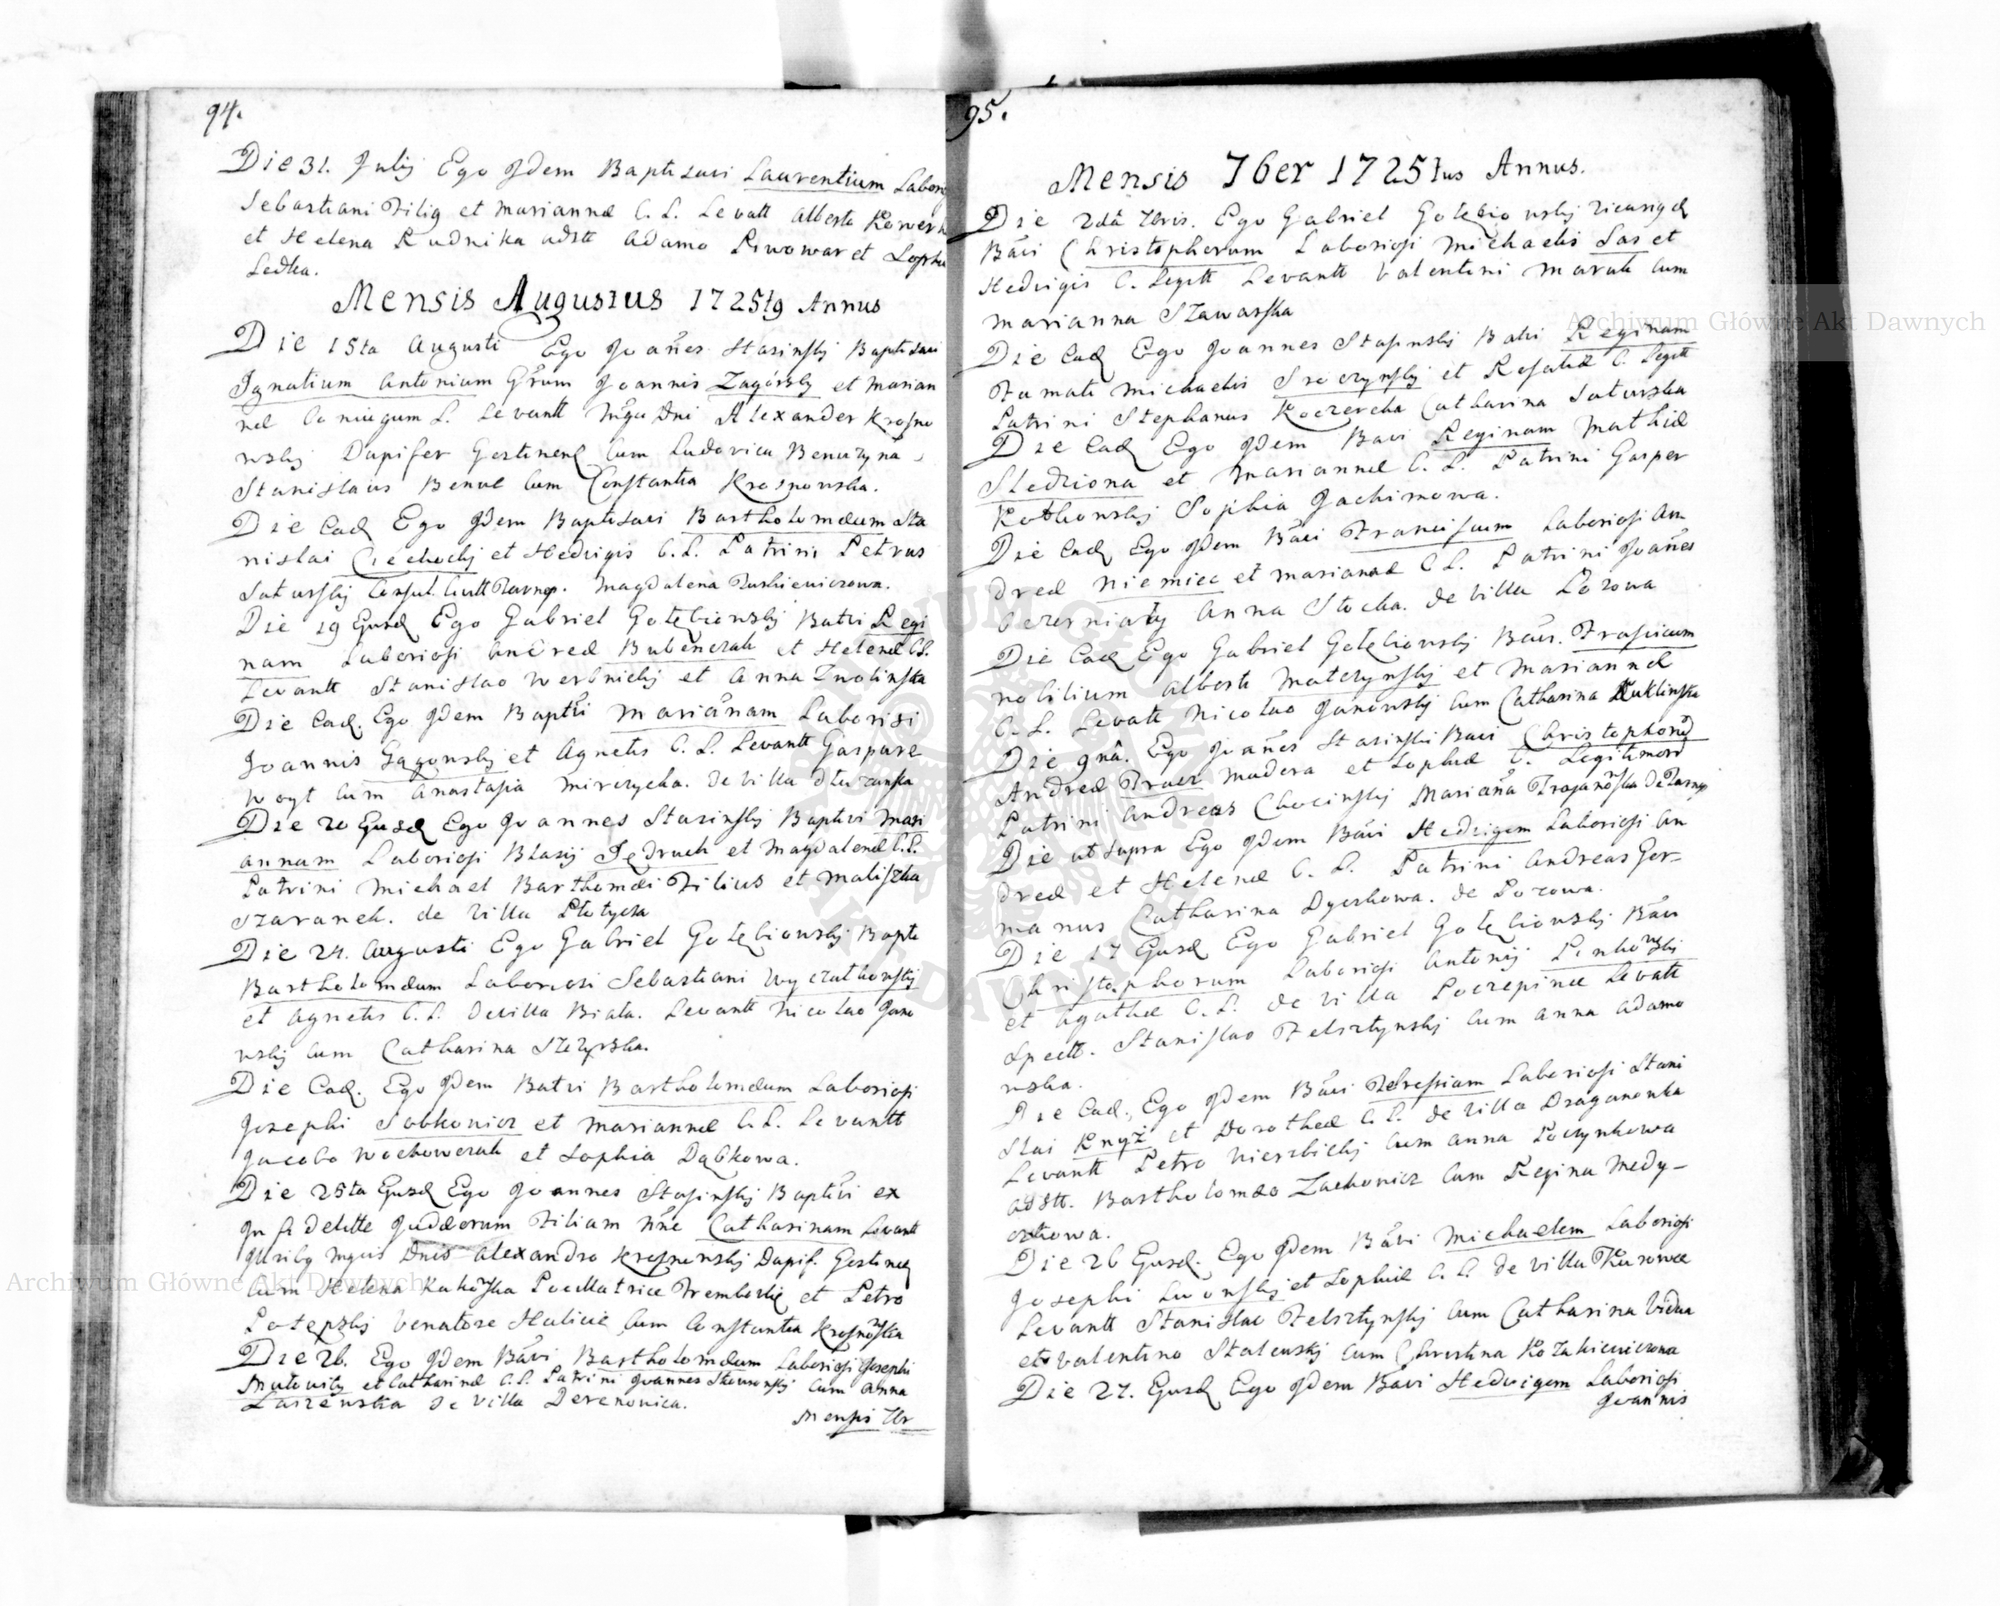 94.
Die 31. Julij Ego Idem Baptisavi Laurentium Labor
Sebastiani Filig et Mariannæ C. L. Levatt Alberto Kower
et Helena Rudnika adstt Adamo Piwowar et Sophia
Sedka.
Mensis Augustus 1725tg Annus
Die 15ta Augusti Ego Joanes Stasinskj Baptisavi
Ignatium Antonium Grum Joannis Zagórskj et Marian
næ Coniugum L. Levantt Mgci Dni Alexander Krosno
wskj Dapifer Gostinen Cum Ludovica Benuzyna
Stanislaus Benue Cum Constantia Krosnowska.
Die Ead Ego Idem Baptisavi Bartholomæum Sta
nislai Ciechockj et Hedvigis C. L. Patrini Petrus
Saturskj Consul. Civitt Tarnop. Magdalena Ruskiewiczowa.
Die 19 Eusd Ego Gabriel Gołębiowskj Batvi Regi
nam Laboriosi Andreæ Bubenczak et Helenæ CL.
Levantt Stanislao Werbnickj et Anna Zwolinska
Die Ead. Ego Idem Baptvi Mariānam Laborisi
Joannis Gągonskj et Agnetis C. L. Levantt Gaspare
Woyt Cum Anastasia Mirczycha. De Villa Dłużanka
Die 20 Eusd Ego Joannes Stasinskj Baptivi Mari
annam Laboriosi Blasij Jędruch et Magdalenæ C. L.
Patrini Michael Barthomæi Filius et Maliszka
Szaranek. de Villa Płotycza
Die 24. Augusti Ego Gabriel Gołębiowskj Bapti
Bartholomæum Laboriosi Sebastiani Wyczułkonskj
et Agnetis C. L. De Villa Biała. Levantt Nicolao Jano
wskj Cum Catharina Szczyrska.
Die Ead. Ego Idem Batvi Bartholomæum Laboriosi
Josephi Sobkowicz et Mariannæ C. L. Levantt
Jacobo Wochowczak et Sophia Dąbkowa.
Die 25ta Eusd Ego Joannes Stasinskj Baptivi ex
In fidelitte Judæorum Filiam nne Catharinam Levantt
Mgcis Dnis Alexandro Krosnowskj Dapif. Gostinen
Cum Helena Pocillatrice Trembovlæ et Petro
Potępskj Venatore Haliciæ Cum Constantia Krosnowska
Die 26. Ego Idem Bāvi Bartholomæum Laboriosi Josephi
et Catharinæ C. L. Patrini Joannes Cum Anna
de Villa Derenowica.
Mensis 7br
95.
Mensis 7ber 1725tus Annus.
Die 2da 7bris. Ego Gabriel Gołębiowskj Vicarig
Bāvi Christopherum Laboriosi Michaelis Sas et
Hedvigis C. Legitt Levantt Valentini Marak Cum
Marianna Szawarska
Die Ead Ego Joannes Stasinskj Batvi Reginam
Famati Michaelis Sroczynskj et Rosaliæ C. Legitt
Patrini Stephanus Koczercka Catharina Saturska
Die Ead Ego Idem Bavi Reginam Mathiæ
Sledziona et Mariannæ C. L. Patrini Gasper
Kotkowskj Sophia Jachimowa.
Die Ead Ego Idem Bāvi Franciscum Laboriosi An
dreæ Niemiec et Marianæ C L. Patrini Joānes
Czerniaty Anna Stocka. de Villa Łozowa
Die Ead Ego Gabriel Gołębiowskj Bāvi. Franciscum
nobilium Alberti Matczynskj et Mariannæ
C. L. Levatt Nicolao Janowskj Cum Catharina Kuklinska
Die 9na. Ego Joānes Stasinski Bavi Christophorū
Andreæ Madera et Sophiæ C. Legitimorū
Patrini Andreas Chocinskj Mariāna Trojanowska De
Die ut supra Ego Idem Bāvi Hedvigem Laboriosi An
dreæ et Helenæ C. L. Patrini Andreas Ger-
manus Catharina Dyczkowa. de Łozowa.
Die 17 Eusd Ego Gabriel Gołębiowskj Bāvi
Christophorum Laboriosi Antonij Pinkowskj
et Agathæ C. L. de Villa Poczepince Levatt
Spectt. Stanislao Felsztynskj Cum Anna Adamo
wska.
Die Ead. Ego Idem Bāvi Teressiam Laboriosi Stani
slai Knyż et Dorotheæ C. L. de Villa Draganowka
Levantt Petro Wierzbickj Cum Anna Poczynkowa
adstt. Bartholomæo Zackowicz Cum Regina Medy-
Die 26 Eusd. Ego Idem Bāvi Michaelem Laboriosi
Josephi Lwowskj et Sophiæ C. L. de Villa Kurowce
Levantt Stanislao Felsztynskj Cum Catharina Vidua
et Valentino Stalewskj Cum Christina Kozakiewiczowa
Die 27. Eusd Ego Idem Bavi Hedvigem Laboriosi
Joannis
Archiwum Główne Akt Dawnych
Archiwum Główne Akt Dawnych
ARCHIWUM GŁÓWNE AKT DAWNYCH